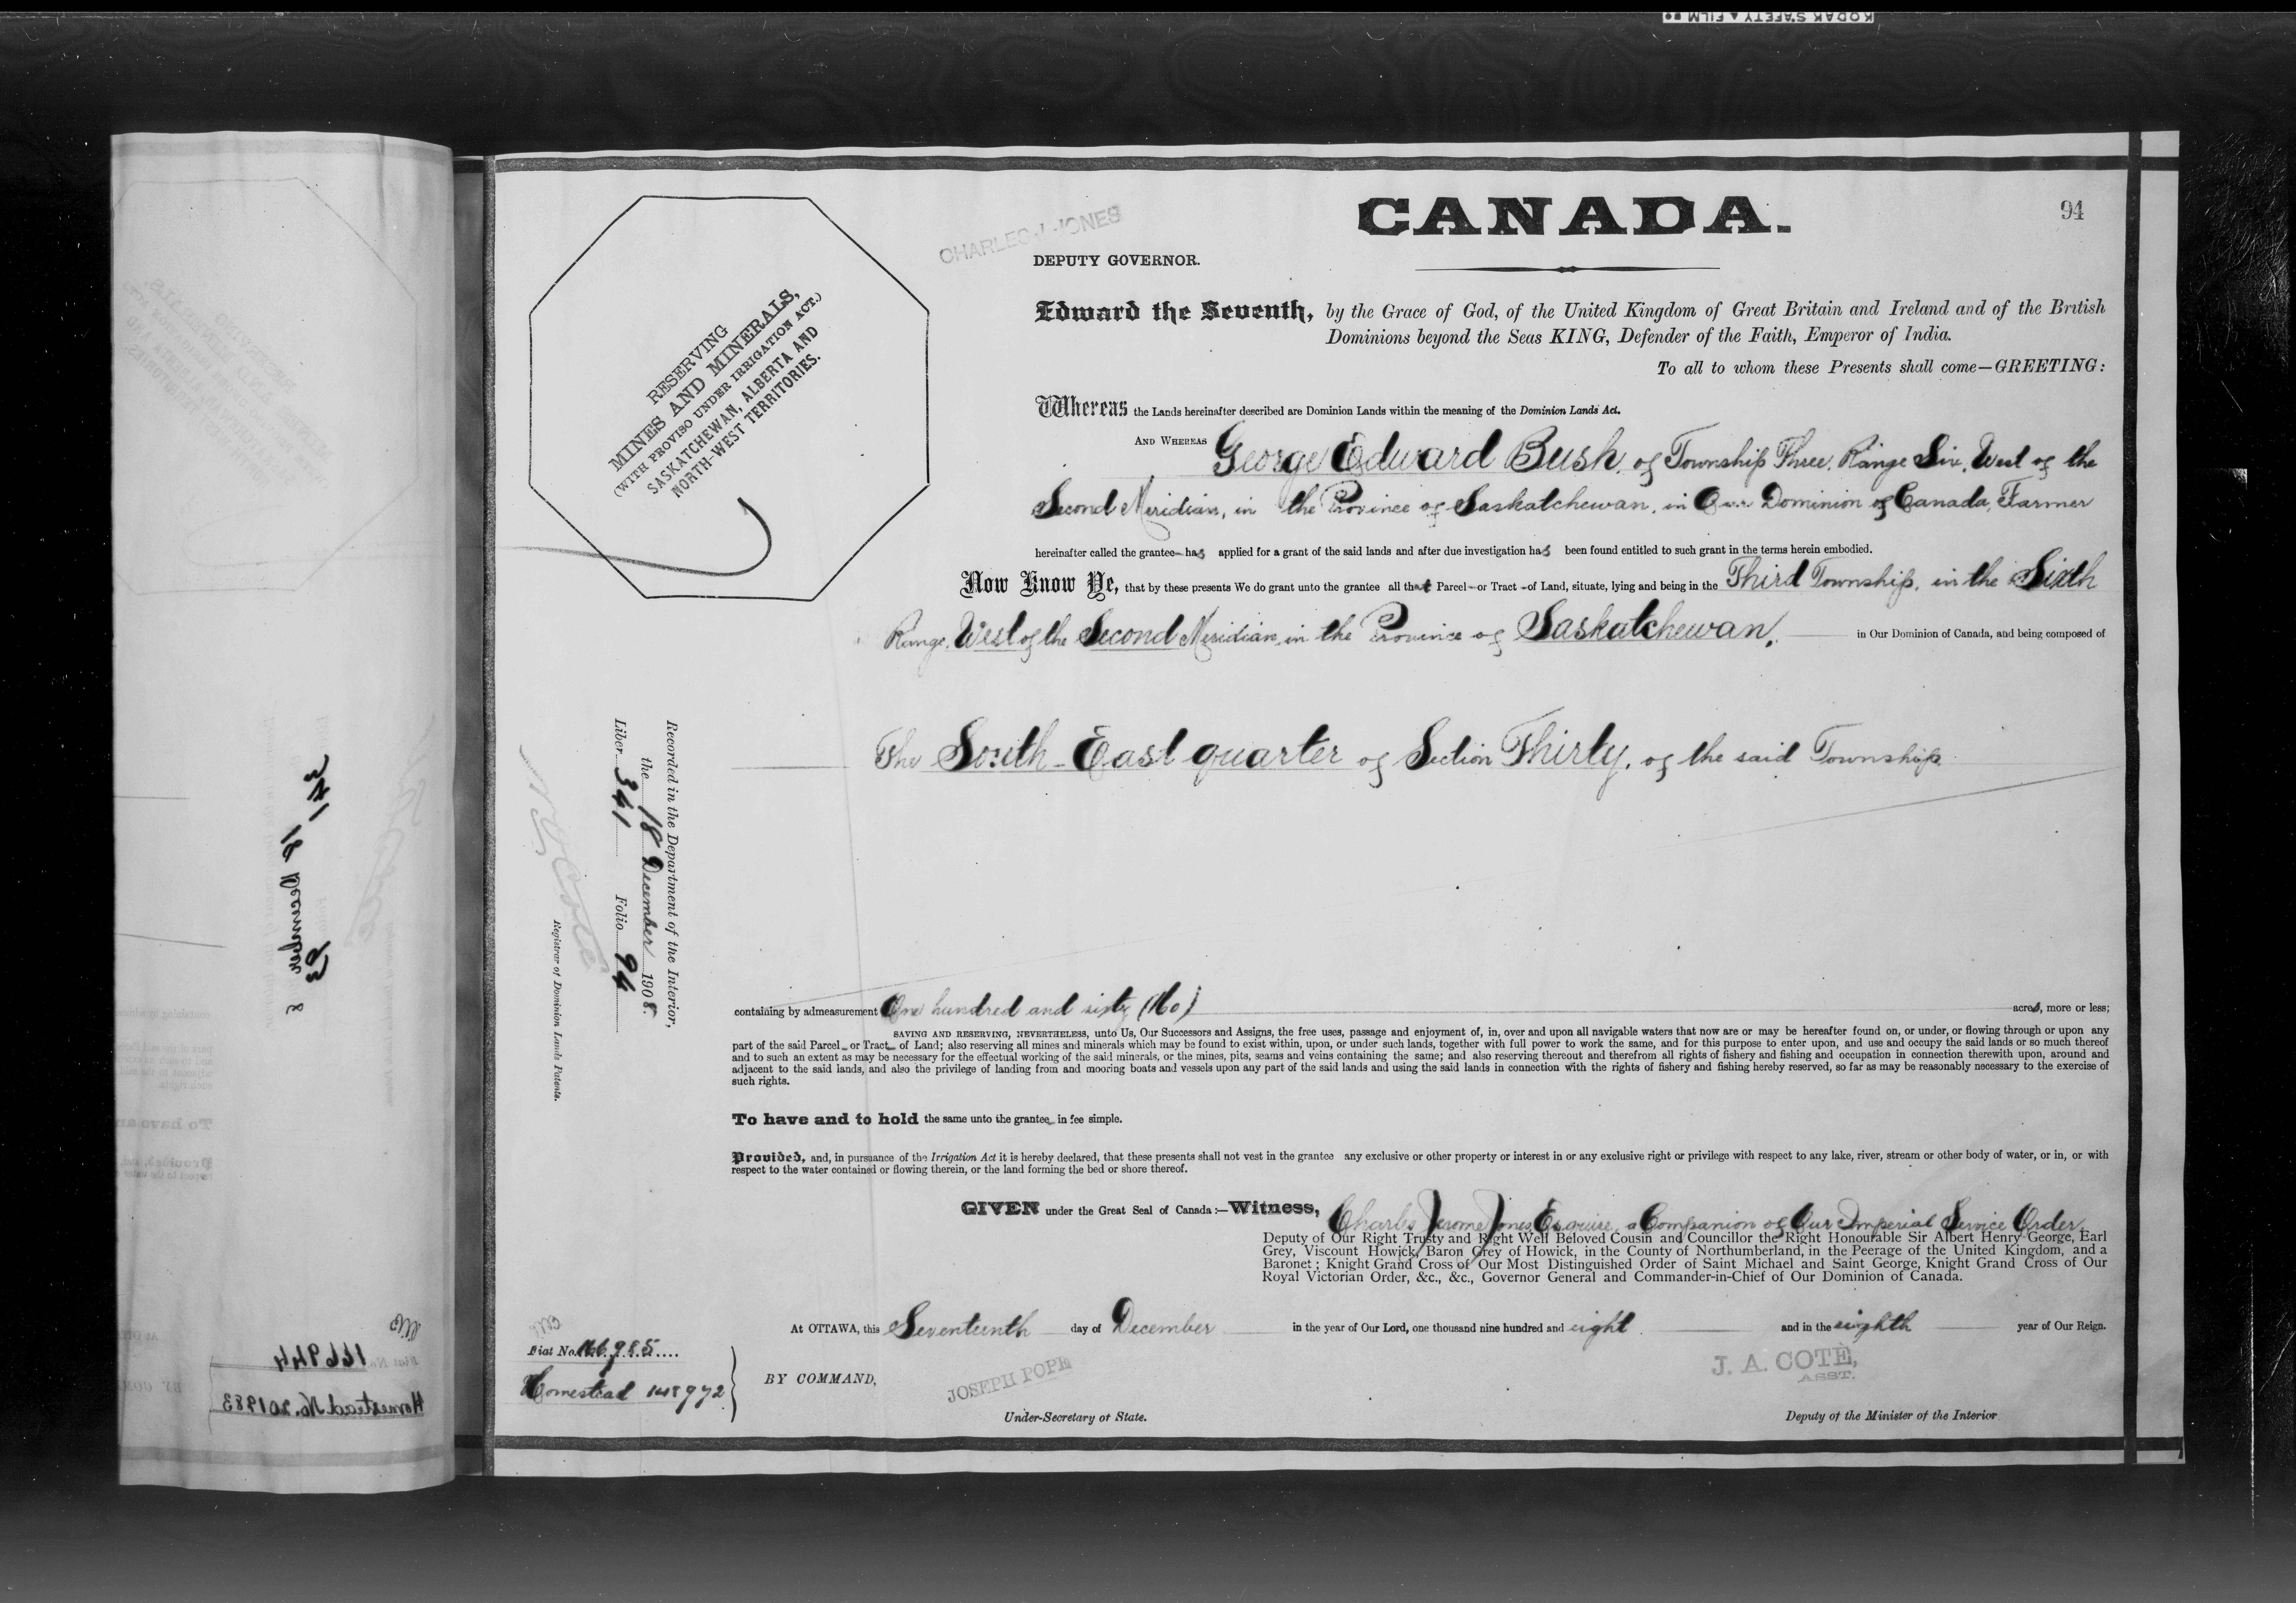 KODAK SAFETY ▲ FILM
CANADA.
94
CHARLES J. JONES
DEPUTY GOVERNOR.
RESERVING
MINES AND MINERALS,
(WITH PROVISO UNDER IRRIGATION ACT.)
SASKATCHEWAN, ALBERTA AND
NORTH-WEST TERRITORIES.
Edward the Seventh, by the Grace of God, of the United Kingdom of Great Britain and Ireland and of the British
Dominions beyond the Seas KING, Defender of the Faith, Emperor of India.
To all to whom these Presents shall come—GREETING:
Whereas the Lands hereinafter described are Dominion Lands within the meaning of the Dominion Lands Act.
AND WHEREAS George Edward Bush, of Township Three, Range Six, West of the
Second Meridian, in the Province of Saskatchewan, in Our Dominion of Canada, Farmer
hereinafter called the grantee has applied for a grant of the said lands and after due investigation has been found entitled to such grant in the terms herein embodied.
Now Know Ye, that by these presents We do grant unto the grantee all that Parcel or Tract of Land, situate, lying and being in the Third Township, in the Sixth
Range, West of the Second Meridian, in the Province of Saskatchewan, in Our Dominion of Canada, and being composed of
The South-East quarter of Section Thirty, of the said Township
Recorded in the Department of the Interior,
the 18 December 1908.
Liber 341 Folio 94
N O Coté
Registrar of Dominion Lands Patents.
containing by admeasurement One hundred and sixty (160) acres, more or less;
SAVING AND RESERVING, NEVERTHELESS, unto Us, Our Successors and Assigns, the free uses, passage and enjoyment of, in, over and upon all navigable waters that now are or may be hereafter found on, or under, or flowing through or upon any
part of the said Parcel or Tract of Land; also reserving all mines and minerals which may be found to exist within, upon, or under such lands, together with full power to work the same, and for this purpose to enter upon, and use and occupy the said lands or so much thereof
and to such an extent as may be necessary for the effectual working of the said minerals, or the mines, pits, seams and veins containing the same; and also reserving thereout and therefrom all rights of fishery and fishing and occupation in connection therewith upon, around and
adjacent to the said lands, and also the privilege of landing from and mooring boats and vessels upon any part of the said lands and using the said lands in connection with the rights of fishery and fishing hereby reserved, so far as may be reasonably necessary to the exercise of
such rights.
To have and to hold the same unto the grantee in fee simple.
Provided, and, in pursuance of the Irrigation Act it is hereby declared, that these presents shall not vest in the grantee any exclusive or other property or interest in or any exclusive right or privilege with respect to any lake, river, stream or other body of water, or in, or with
respect to the water contained or flowing therein, or the land forming the bed or shore thereof.
GIVEN under the Great Seal of Canada:—Witness, Charles Jerome Jones, Esquire, a Companion of Our Imperial Service Order,
Deputy of Our Right Trusty and Right Well Beloved Cousin and Councillor the Right Honourable Sir Albert Henry George, Earl
Grey, Viscount Howick, Baron Grey of Howick, in the County of Northumberland, in the Peerage of the United Kingdom, and a
Baronet; Knight Grand Cross of Our Most Distinguished Order of Saint Michael and Saint George, Knight Grand Cross of Our
Royal Victorian Order, &c., &c., Governor General and Commander-in-Chief of Our Dominion of Canada.
At OTTAWA, this Seventeenth day of December in the year of Our Lord, one thousand nine hundred and eight and in the eighth year of Our Reign.
Fiat No. 166985
Homestead 148972
BY COMMAND,
JOSEPH POPE
Under-Secretary of State.
J. A. COTÉ,
ASST.
Deputy of the Minister of the Interior.
341
18 December 8
93
166944
Homestead No. 201983